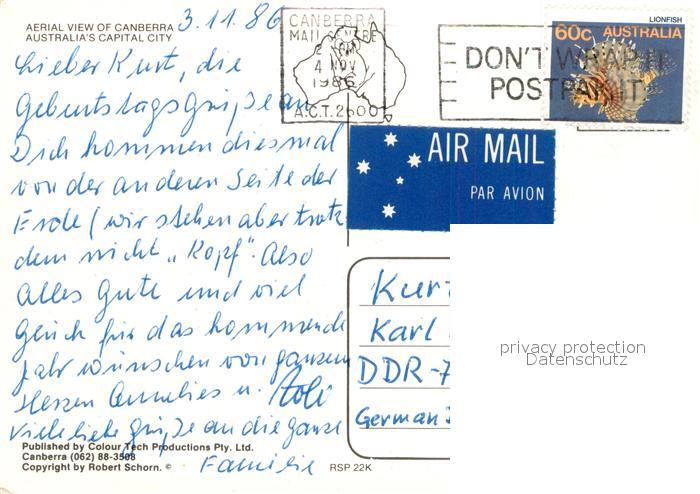 AERIAL VIEW OF CANBERRA
AUSTRALIA'S CAPITAL CITY
3.11.86
Lieber Kurt, die
Geburtstagsgrüße an
Dich kommen diesmal
von der anderen Seite der
Erde (wir stehen aber trotz
dem nicht „Kopf". Also
alles Gute und viel
Glück für das kommende
Jahr wünschen von ganzem
Herzen Annelies u.
Viele liebe Grüße an die ganze
Familie
Published by Colour Tech Productions Pty. Ltd.
Canberra (062) 88-3508
Copyright by Robert Schorn. ©
RSP 22K
CANBERRA
MAIL CENTRE
4 NOV
1986
A.C.T. 2600
DON'T WRAP IT
POSTPAK IT
LIONFISH
60c AUSTRALIA
AIR MAIL
PAR AVION
Kurt
Karl
DDR-7
German
privacy protection
Datenschutz